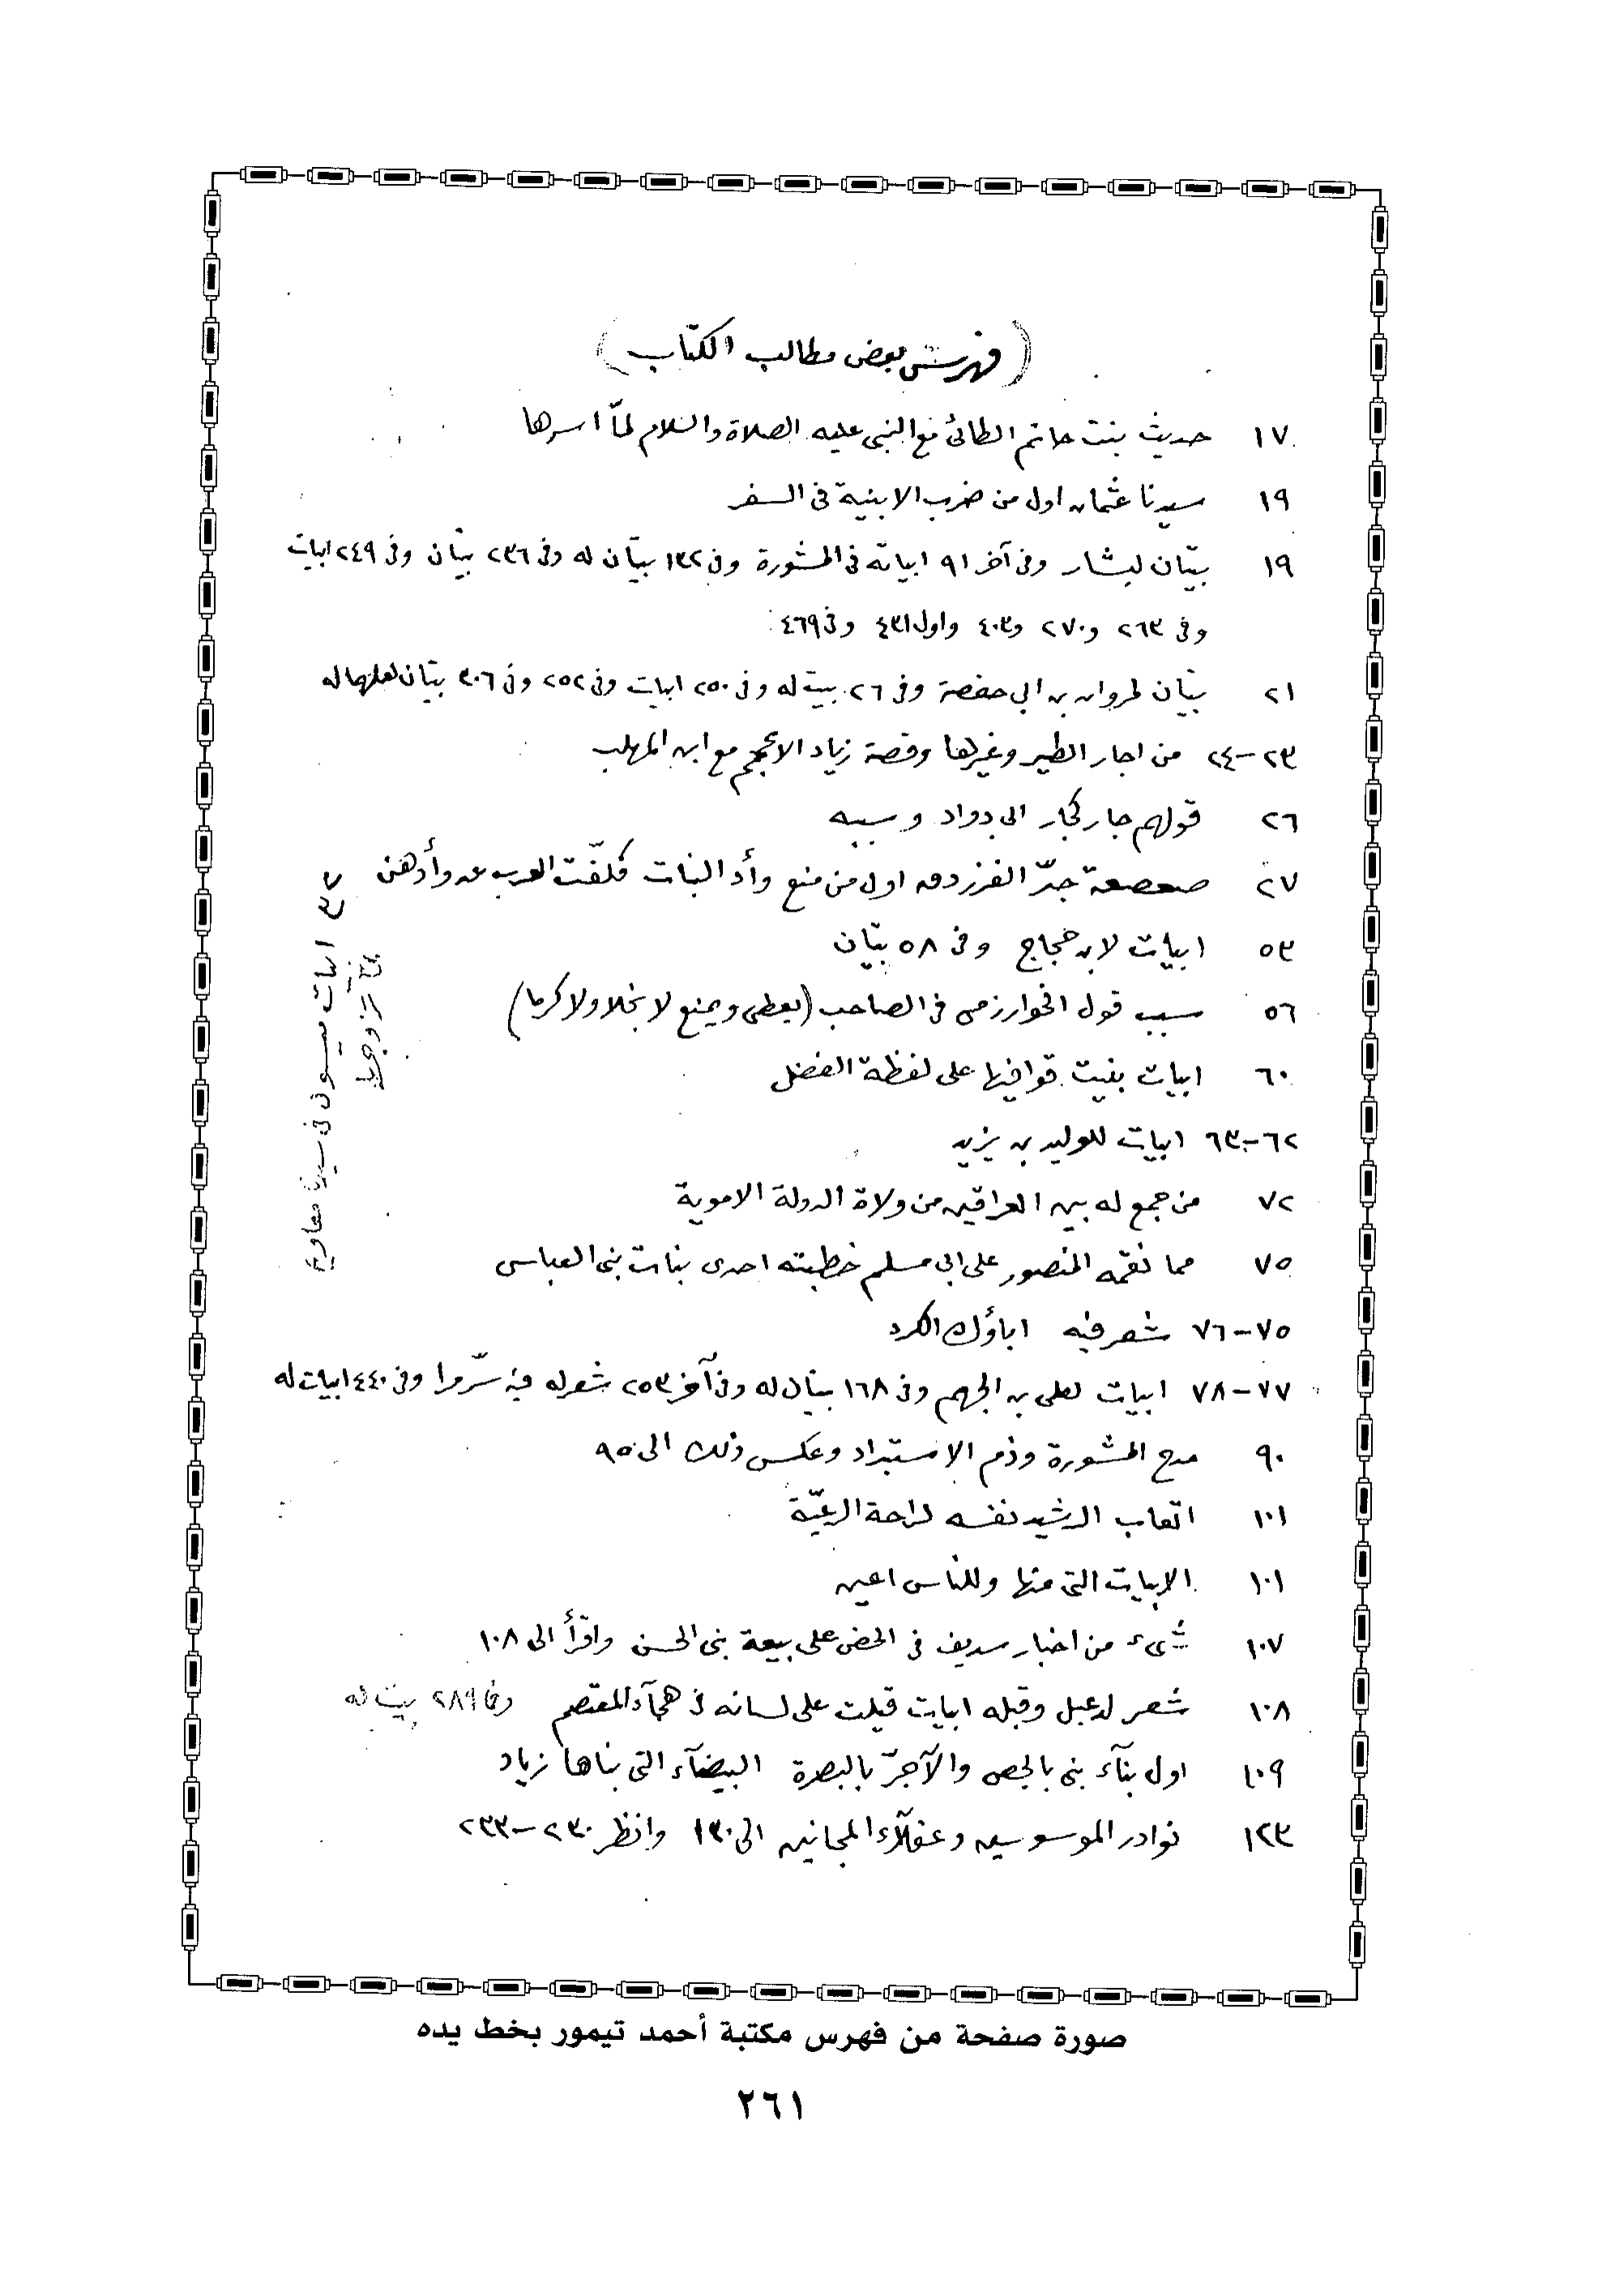 (فهرس بعض مطالب الكتاب)
١٧ حديث بنت حاتم الطائى مع النبى عليه الصلاة والسلام لمّا اسرها
١٩ سيدنا عثمان اول من ضرب الابنية فى السفر
١٩ بيتان لبشار وفى آخر ٩١ ابياته فى المشورة وفى ١٣٢ بيتان له وفى ٢٣٦ بيتان وفى ٢٤٩ ابيات
وفى ٢٦٣ و٢٧٠ و٤٠٣ واول ٤٣١ وفى ٤٦٩
٢١ بيتان لمروان بن ابى حفصة وفى ٢٦ بيت له وفى ٢٥٠ ابيات وفى ٢٥٢ وفى ٣٠٦ بيتان لعلهما له
٢٣-٢٤ من اجار الطير وغيرها وقصة زياد الاعجم مع ابن المهلب
٢٦ قولهم جار كجار ابى دواد وسببه
٢٧ صعصعة جدّ الفرزدق اول من منع وأد البنات فكفّت العرب عن وأدهن
٣٧ ابيات ميسون فى سيدنا معاوية
لما تزوجها
٥٣ ابيات لابن حجاج وفى ٥٨ بيتان
٥٦ سبب قول الخوارزمى فى الصاحب (يعطى ويمنع لا بخلا ولا كرما)
٦٠ ابيات بنيت قوافيها على لفظة الفضل
٦٢-٦٣ ابيات للوليد بن يزيد
٧٢ من جمع له بين العراقين من ولاة الدولة الاموية
٧٥ مما نقمه المنصور على ابى مسلم خطبته احدى بنات بنى العباس
٧٥-٧٦ شعر فيه اباؤك الكرد
٧٧-٧٨ ابيات لعلى بن الجهم وفى ١٦٨ بيتان له وفى آخر ٢٥٣ شعر له فيه سرّ مرا وفى ٤٤٠ ابيات له
٩٠ مدح المشورة وذم الاستبداد وعكس ذلك الى ٩٥
١٠١ اتعاب الرشيد نفسه لراحة الرعيّة
١٠١ الابيات التى منها وللناس اعين
١٠٧ شىء من اخبار سديف فى الحض على بيعة بنى الحسن واقرأ الى ١٠٨
١٠٨ شعر لدعبل وقبله ابيات قيلت على لسانه فى هجآء المعتصم وفى ٢٨٩ بيت له
١٠٩ اول بنآء بنى بالجص والآجرّ بالبصرة البيضآء التى بناها زياد
١٢٣ نوادر الموسوسين وعقلآء المجانين الى ١٣٠ وانظر ٢٣٠-٢٣٣
صورة صفحة من فهرس مكتبة أحمد تيمور بخط يده
٢٦١